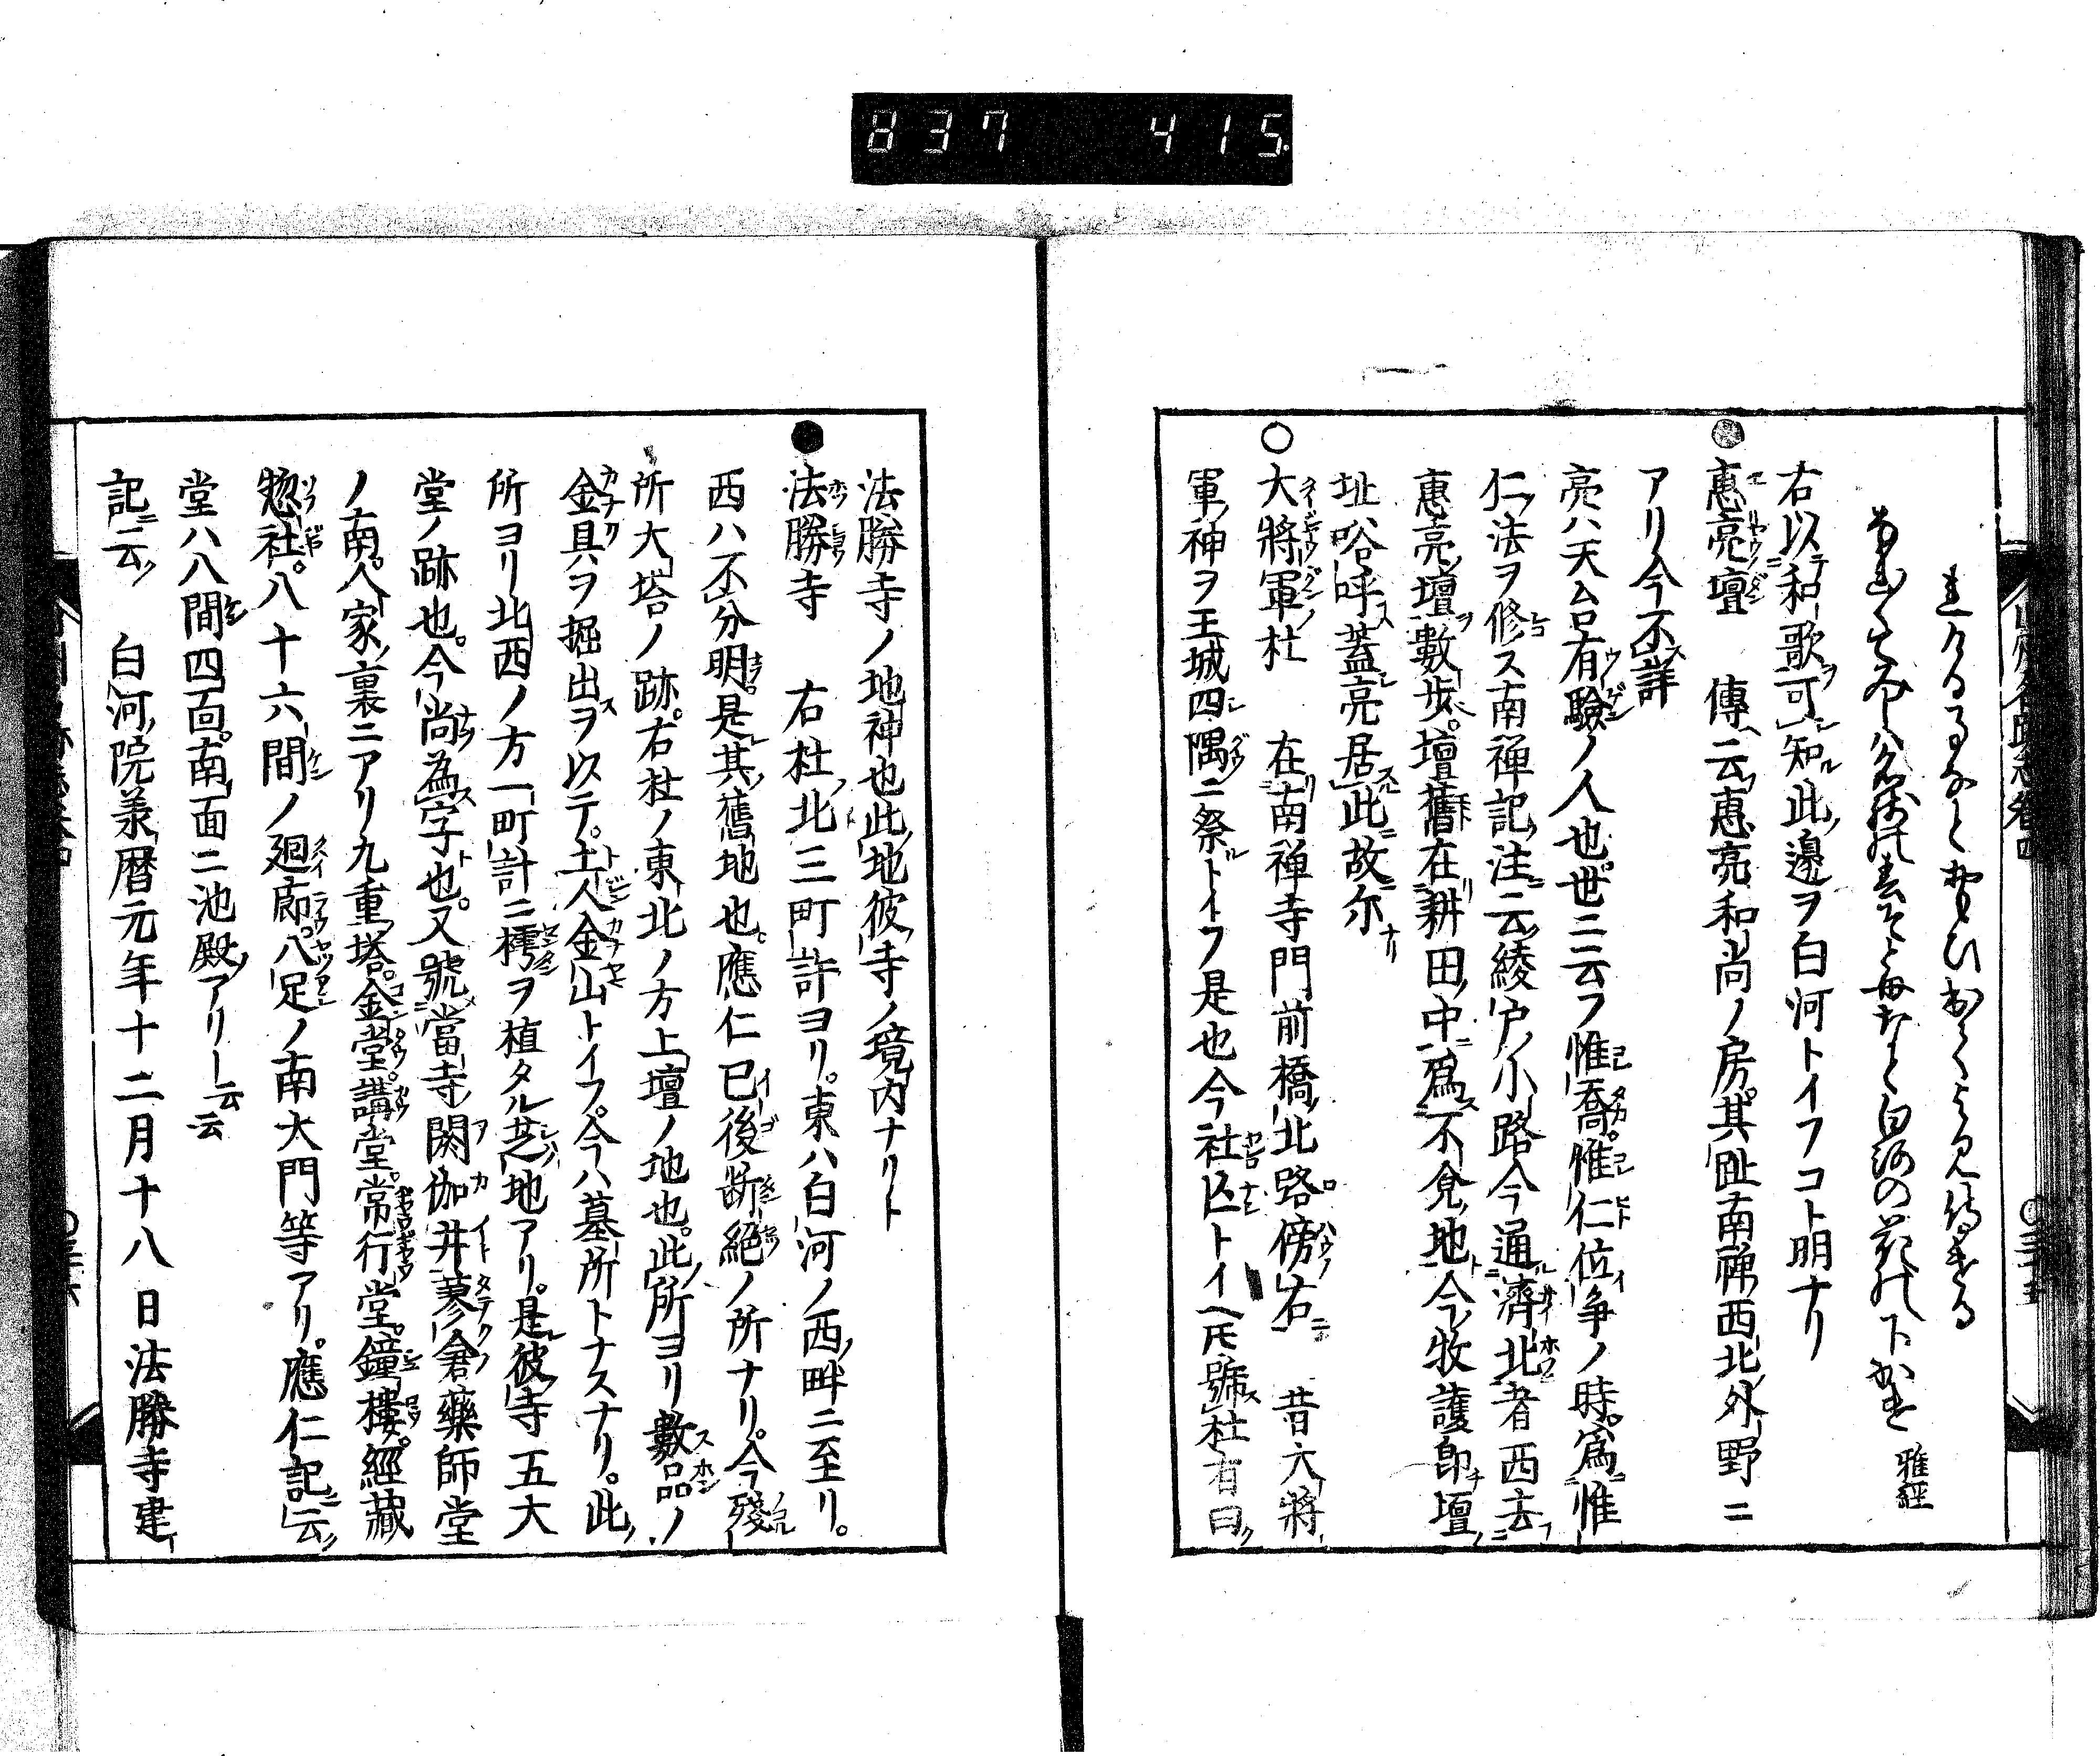 837 415
れけるるなと思ひわくよみ侍ける
なれ〳〵てみしは名殘の春そとも なと白河の花の下かけ 雅経
右以テ和歌ヲ可シ知ル此邊ヲ白河トイフコト明ナリ
惠亮壇 傳ヘ云フ惠亮和尚ノ房其趾南禪西北ノ外野ニ
アリ今不詳
亮ハ天台有驗ノ人也世ニ云フ惟喬惟仁位争ノ時爲惟
仁法ヲ修ス南禅記ノ注ニ云綾戸ノ小路今通濟北者西去
惠亮ノ壇ヲ數歩壇舊在耕田中爲不免地今牧護卽壇
址俗呼ス蓋亮居此故尓ナリ
大將軍社 在南禅寺門前橋北路ノ傍右ニ 昔大將
軍神ヲ王城四隅ニ祭ルトイフ是也今社亡トイヘ𪜈號社者曰ク
法勝寺ノ地神也此地彼寺ノ境内ナリト
法勝寺 右社ノ北三町許ヨリ東ハ白河ノ西畔ニ至リ
西ハ不分明是其舊地也應仁已後断絶ノ所ナリ今殘ル
所大塔ノ跡右社ノ東北ノ方上壇ノ地也此ノ所ヨリ數品ノ
金具ヲ掘出スヲ以テ土人金山トイフ今ハ墓所トナスナリ此
所ヨリ北西ノ方一町計ニ樗ヲ植タル芝地アリ是彼寺五大
堂ノ跡也今尚為字也又號當寺閼伽井蓼倉藥師堂
ノ南人家ノ裏ニアリ九重塔金堂講堂常行堂鐘樓經藏
惣社八十六間ノ廻廊八足ノ南大門等アリ應仁記ニ云
堂ハ八間四面南面ニ池殿アリー云云
記ニ云 白河院兼暦元年十二月十八日法勝寺建